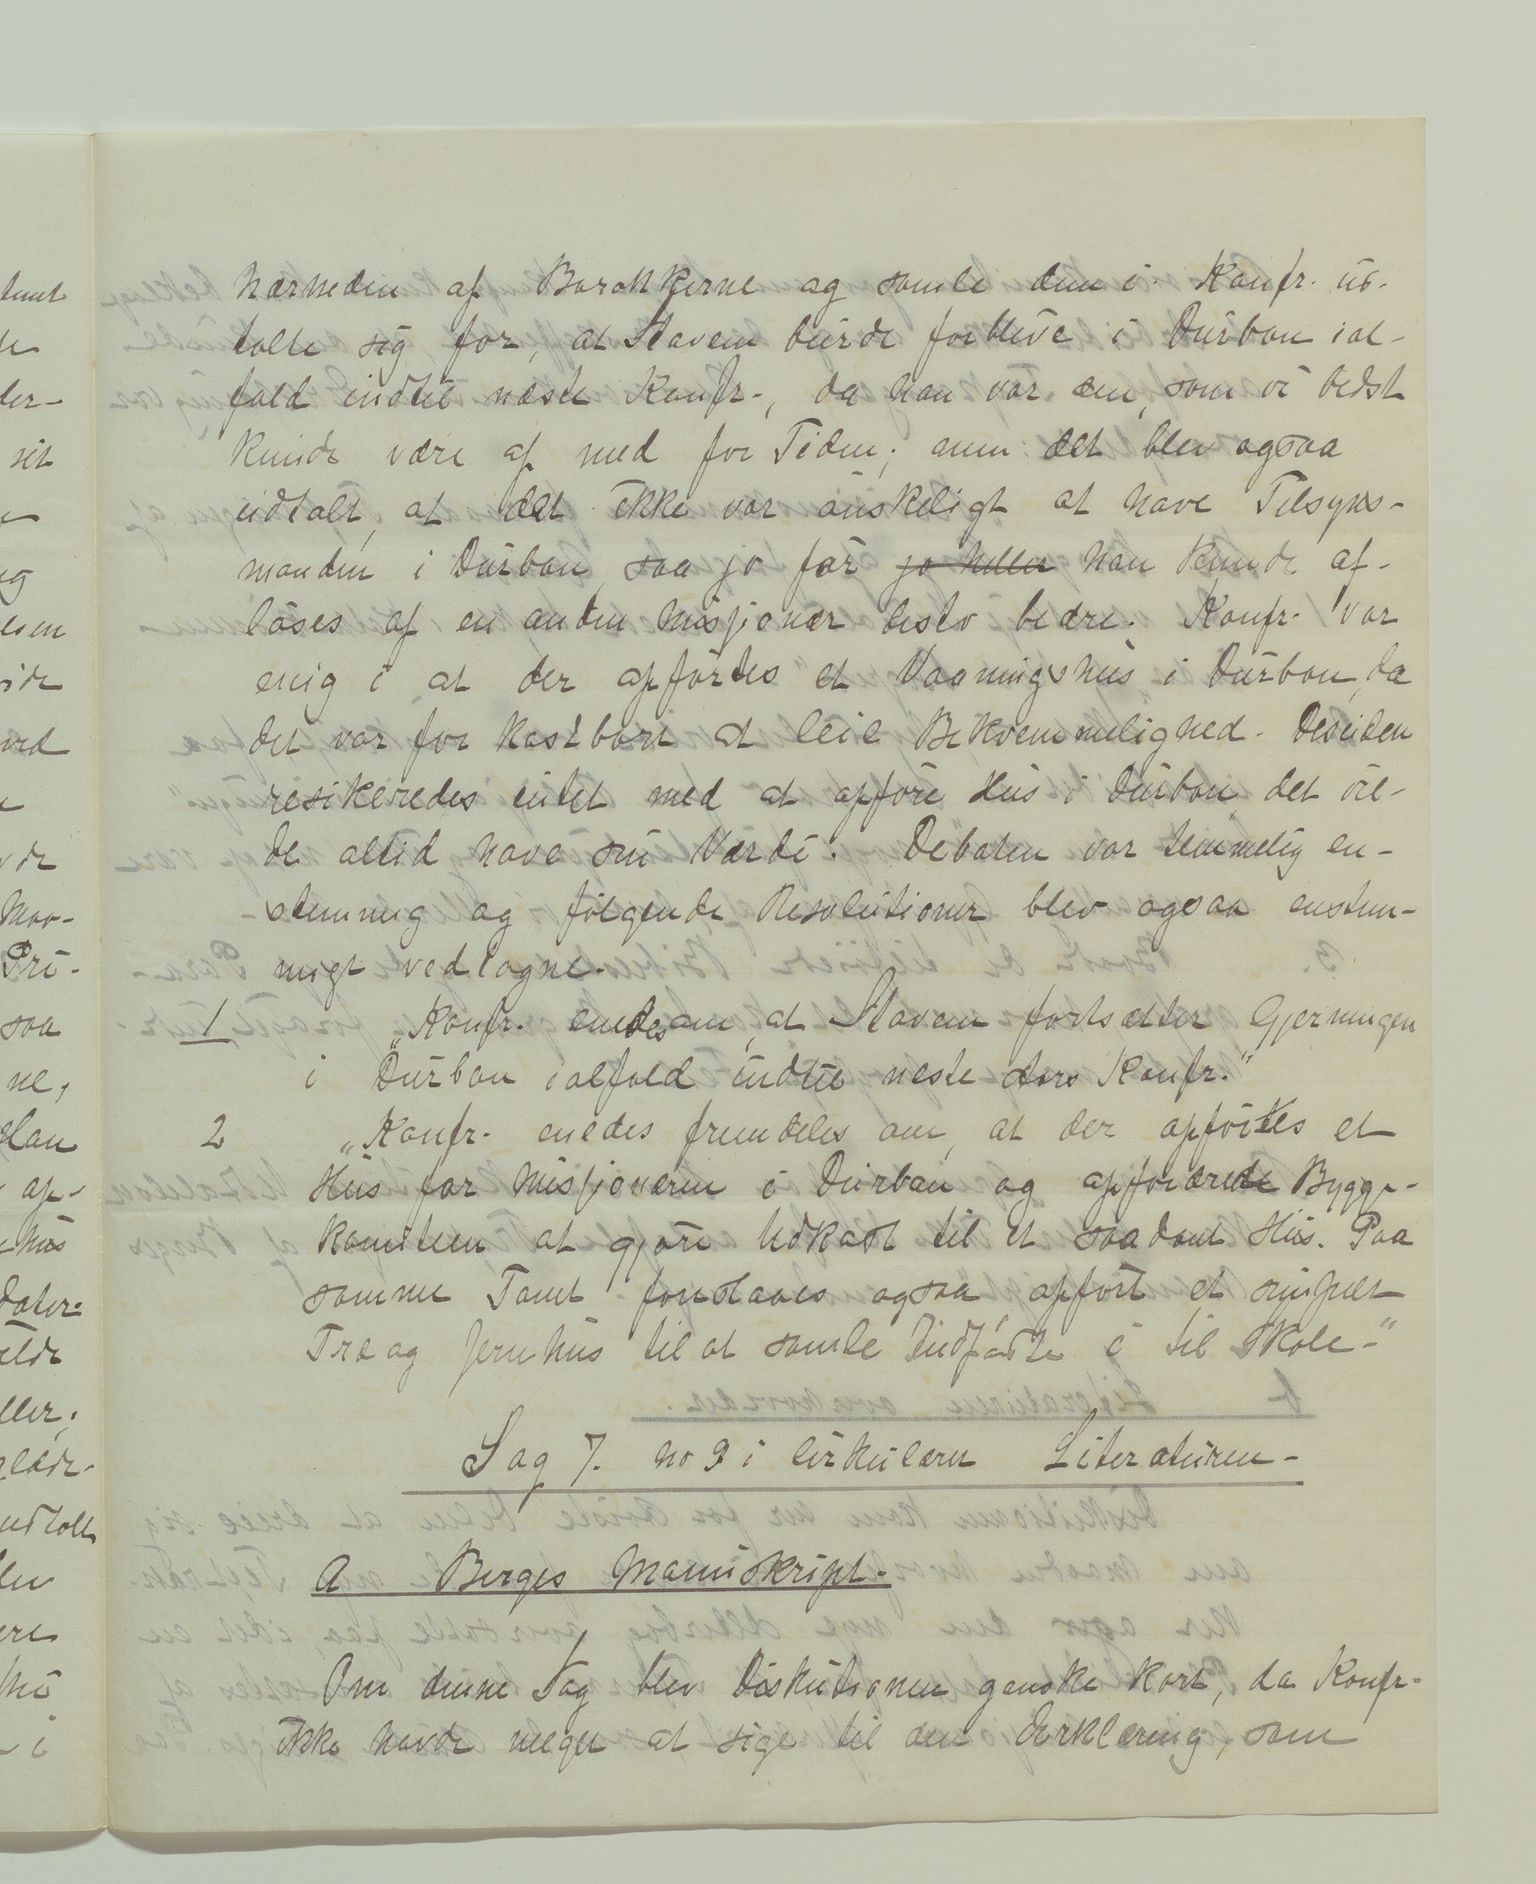 nærheden af Barakkerne og samle dem i. Konfr. ud-
talte sig for, at Stavem burde forblive i Durban ial-
fald indtil næste Konfr., da han var den, som vi bedst
kunde være af med for Tiden; men det blev ogsaa
udtalt, at det ikke var ønskeligt at have Tilsyns-
manden i Durban, saa jo før jo heller han kunde af-
løses af en anden Missjonær desto bedre. Konfr. var
enig i at der opførtes et Vaaningshus i Durban, da
det var for kostbart at leie Bekvemmelighed. Desuden
resikeredes intet med at opføre Hus i Durban det vil-
de altid have sin Værdi. Debaten var temmelig en-
stemmig og følgende Resolutioner blev ogsaa enstem-
migt vedtagne.
1 „Konfr. enedes om, at Stavem fortsætter Gjerningen
i Durban ialfald indtil neste Aars Konfr."
2 „Konfr. enedes fremdeles om, at der opførtes et
Hus for Missjonæren i Durban og opfordrede Bygge-
komiteen at gjøre Udkast til et saadant Hus. Paa
samme Tomt foreslaaes ogsaa opført et simpelt
Træ og Jernhus til at samle Indfødte i til Skole."
Sag 7. no 9 i Cirkulæren Literaturen-
A Berges Manuskript.
Om denne Sag blev Diskutionen ganske kort, da Konfr.
ikke havde meget at sige til den Erklæring, som
temt
der-
sit
og
esen
ved
Maa-
Pri-
saa
ne,
Han
op-
hus
Dater-
ller,
udtalt
ere
i